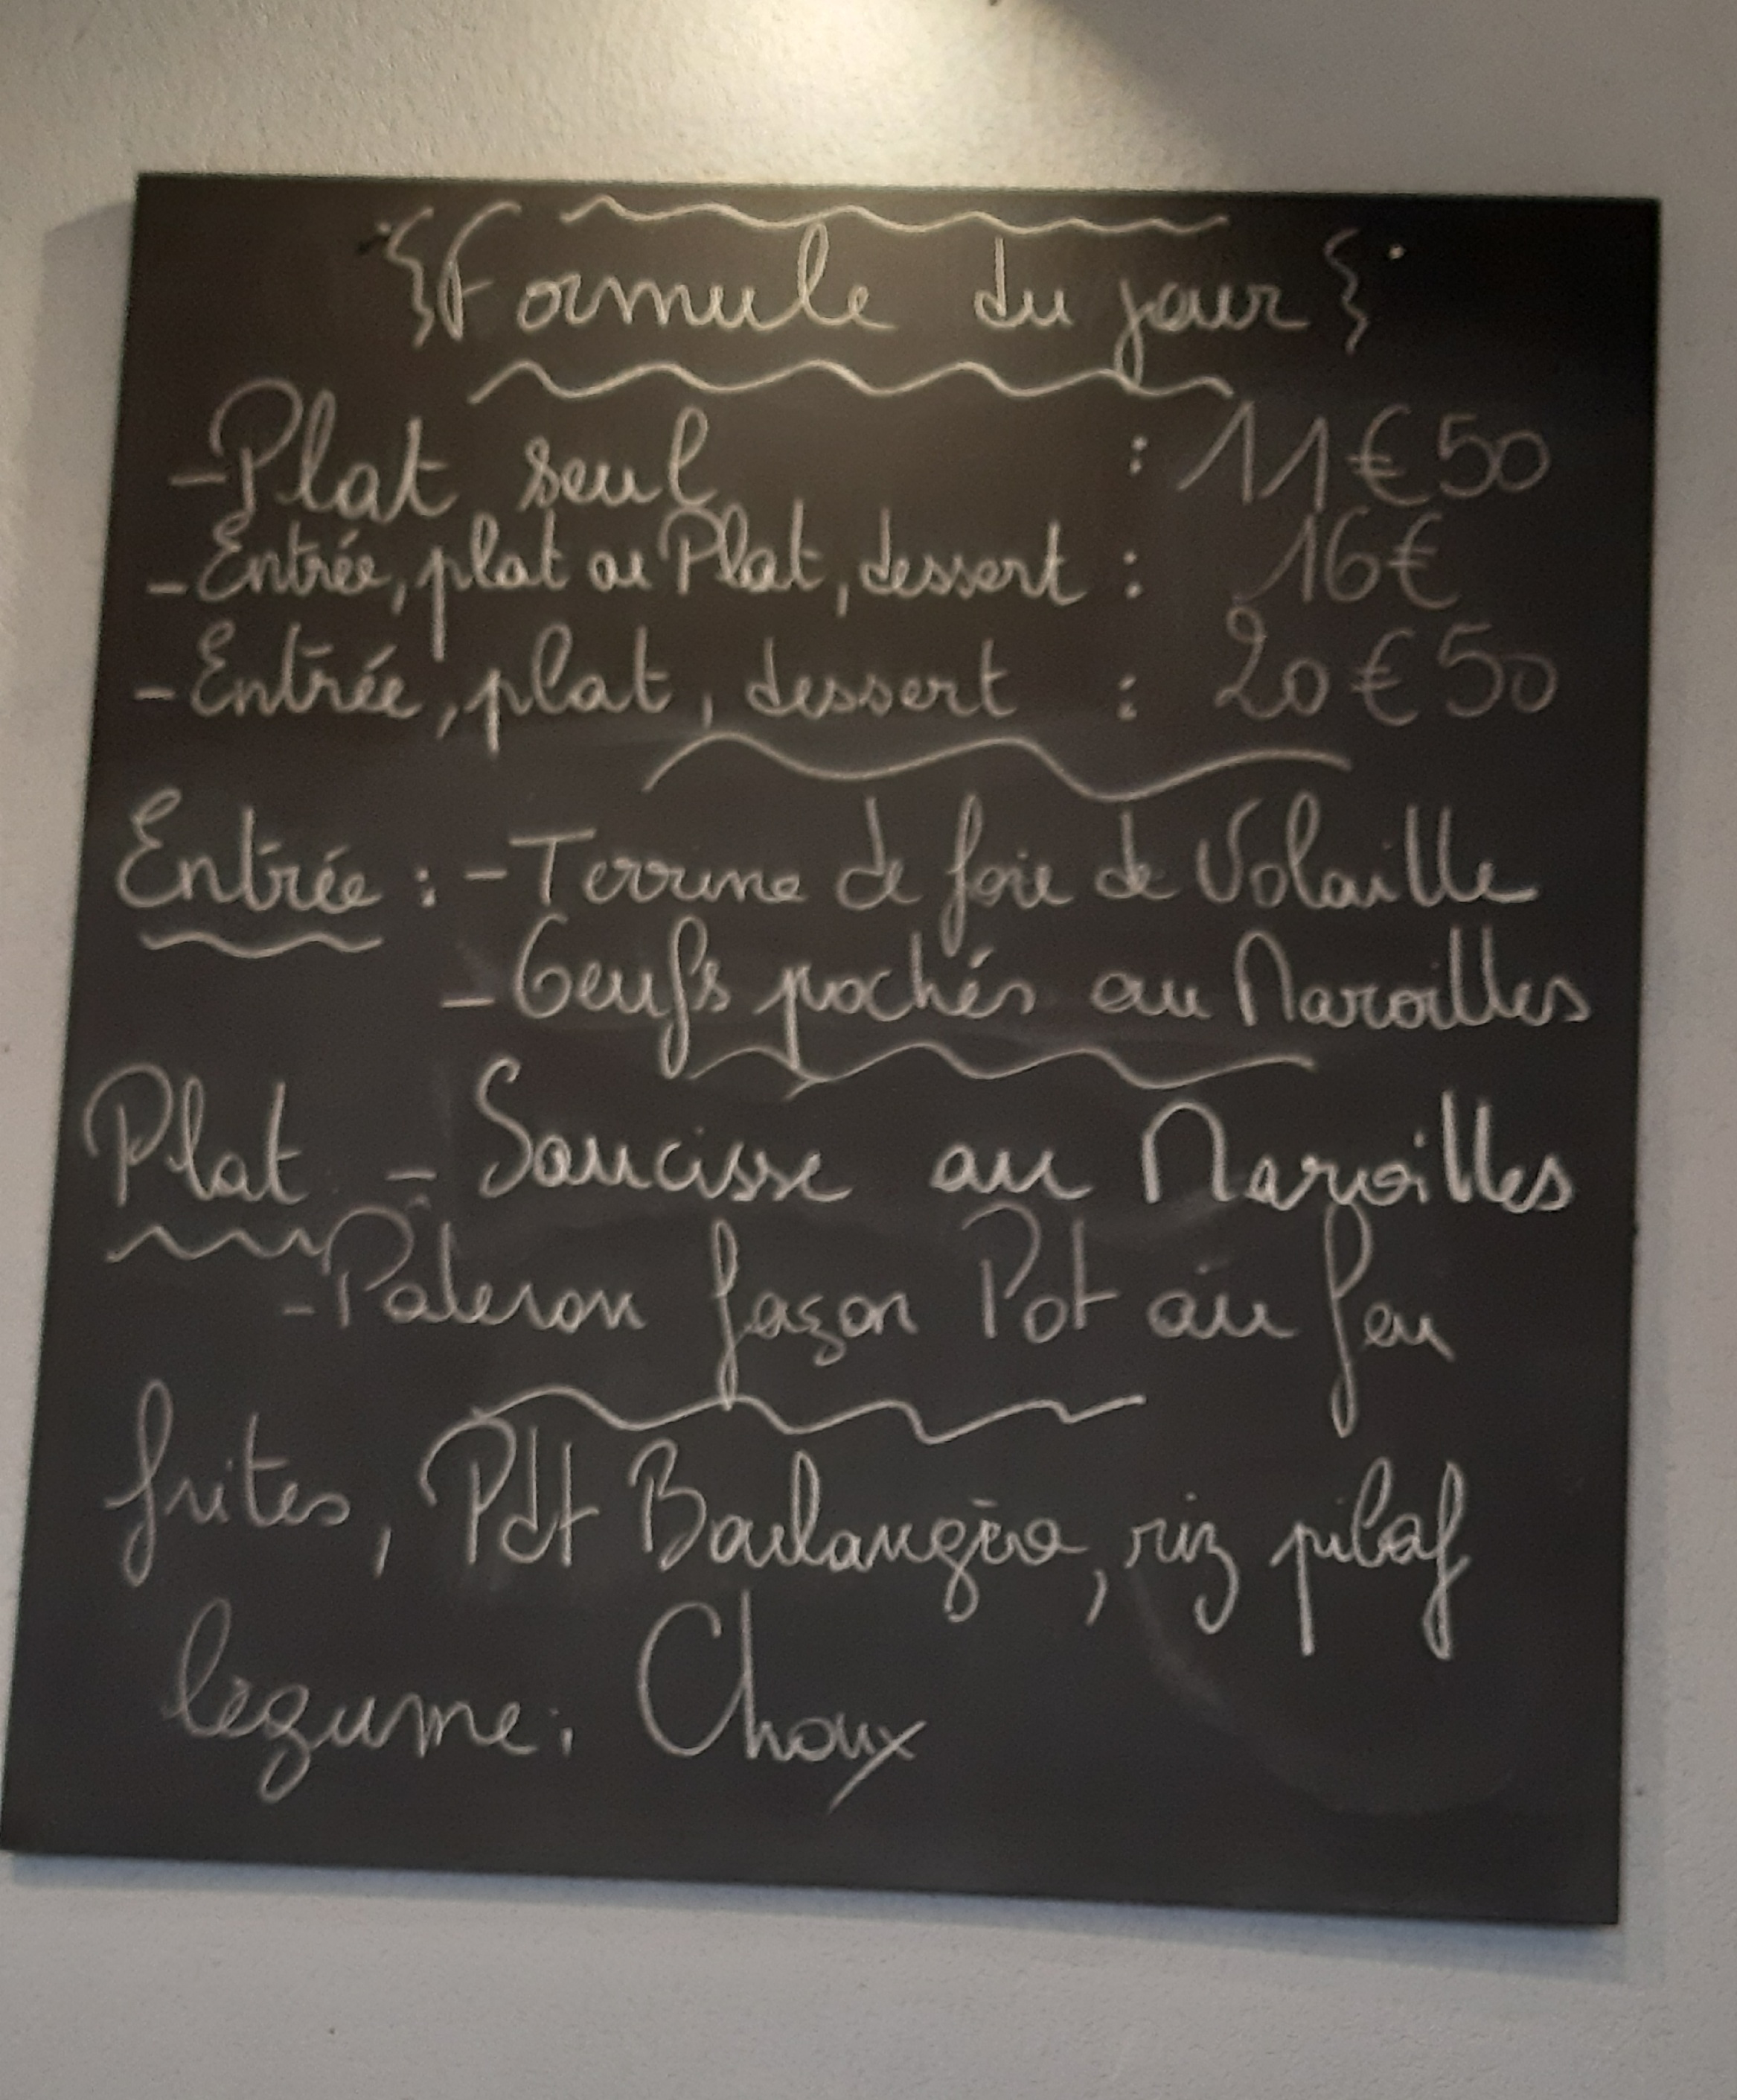 {Formule du jour}
- Plat seul : 11€50
- Entrée, plat ou Plat, dessert : 16€
- Entrée, plat, dessert : 20€50
Entrée : - Terrine de foie de Volaille
- Oeufs pochés au Maroilles
Plat - Saucisse au Maroilles
- Paleron façon Pot au feu
frites, Pdt Boulangère, riz pilaf
légume : Choux